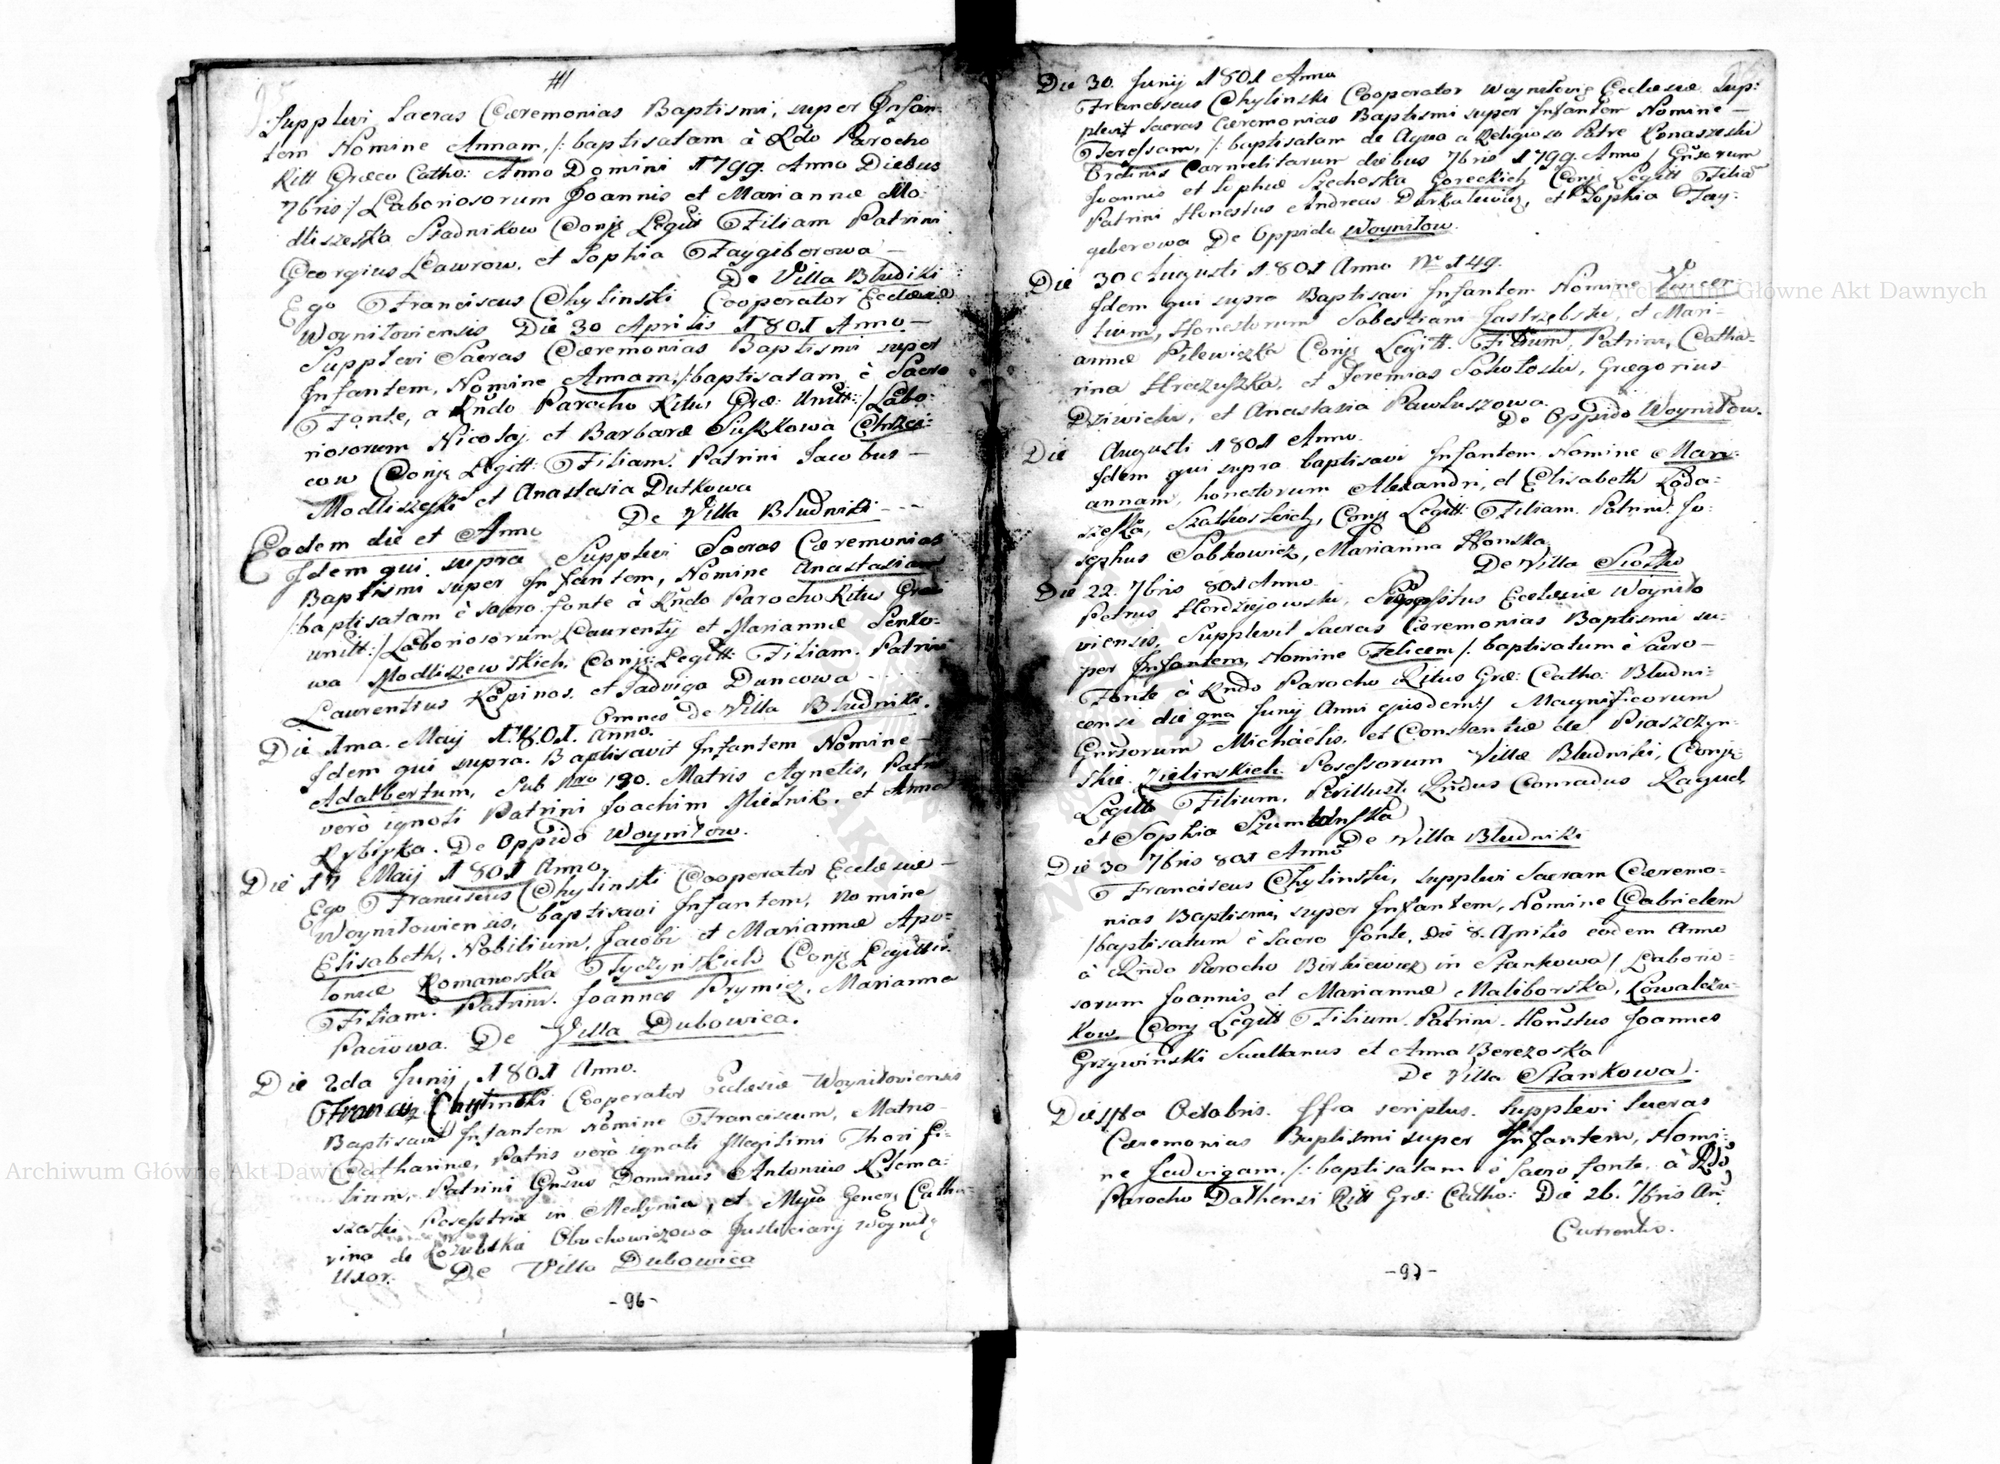 Supplevi Sacras Cæremonias Baptismi, super Infan-
tem Nomine Annam, /: baptisatam à Rdo Parocho
Ritt Græco Catho: Anno Domini 1799. Anno Diebus
7bris :/ Laboriosorum Joannis et Mariannæ Mo-
dliszeska Stadnikow Conjg Legitt Filiam Patrini
Georgius Lawrow, et Sophia Faygiborowa —
De Villa Bludniki
Ego Franciscus Chylinski Cooperator Ecclesiæ
Woyniloviensis Die 30 Aprilis 1801 Anno —
Supplevi Sacras Cæremonias Baptismi super
Infantem, Nomine Annam, /: baptisatam è Sacro
Fonte, a Rndo Parocho Ritus Græ: Unitt: / Labo-
riosorum Nicolaj et Barbaræ Suszkowa
cow Conjg Legitt: Filiam. Patrini Jacobus —
Modliszeski et Anastasia Dutkowa
De Villa Bludniki - - -
Eadem die et Anno
Idem qui supra Supplevi Sacras Cæremonias
Baptismi super Infantem, Nomine Anastasiam
/: baptisatam è sacro fonte à Rndo Parocho Ritus Græ
unitt: / Laboriosorum Laurentij et Mariannæ Senko-
wa Modliszewskich, Conjg: Legitt: Filiam. Patrini
Laurentius Kopinos. et Jadviga Duncowa
Omnes De Villa Bludniki.
Die 1ma. Maij 1801. Anno.
Idem qui supra. Baptisavit Infantem Nomine —
Adalbertum, Sub Nro 190. Matris Agnetis, Patris
verò ignoti Patrini Joachim Mieśnik, et Anna
Rybitka. De Oppido Woyniłow.
Die 17 Maij 1801 Anno,
Ego Franciscus Chylinski Cooperator Ecclesiæ —
Woyniłowiensis, baptisavi Infantem, Nomine
Elisabeth, Nobilium, Jacobi et Mariannæ Apo-
loniæ Romanoska Tyczynskich Conjg Legitt:
Filiam. Patrini. Joannes Prymicz, Marianna
Paciowa. De Villa Dubowica.
Die 2da Junij 1801 Anno.
Francis Chylinski Cooperator Ecclesiæ Woyniloviensis
Baptisavi Infantem Nomine Franciscum, Matris
Catharinæ, Patris verò ignoti Illegitimi Thori fi-
lium, Patrini Gnsus Dominus Antonius Klema-
szeski Posesstrix in Medynia, et Mgfa Gener: Catha-
rina de Łozubska Obuchowiczowa Justiciarij Woynil:
Uxor. De Villa Dubowica
-96-
Die 30 Junij 1801 Anno
Franciscus Chylinski Cooperator Woynilovien Ecclesiæ Sup:
plevit Sacras Cæremonias Baptismi super Infantem Nomine —
Teressam, /: baptisatam de Aqua a Religioso Patre Konaszeski
Ordinis Carmelitarum diebus 7bris 1799. Anno / Gnsorum
Joannis et Sophiæ Szechoska Goreckich Conjg Legitt Filiã
Patrini Honestus Andreas Durkalewicz, et Sophia Fay-
giberowa De Oppido Woyniłow.
Die 30 Augusti 1801 Anno Nr 149.
Idem qui supra Baptisavi Infantem Nomine
tium, Honestorum Sobestiani Jastrzębski, et Mari-
annæ Pilewiczka Conjg Legitt. Filium, Patrini, Catha-
rina Hraczuszka, et Jeremias Sokołoski, Gregorius
Dziwicki, et Anastasia Pawluszowa.
De Oppido Woyniłow.
Die Augusti 1801 Anno.
Idem qui supra baptisavi Infantem Nomine Mari-
annam, honestorum Alexandri, et Elisabeth Łoda-
szeska, Szatkoskich, Conjg Legitt: Filiam. Patrini. Jo-
sephus Sobkowicz, Marianna Honska
De Villa Siołko
Die 22. 7bris 801 Anno.
Petrus Herdziejowski, Præpositus Ecclesiæ Woynilo
viensis, Supplevit Sacras Cæremonias Baptismi su-
per Infantem, Nomine Felicem /: baptisatum è sacro —
Fonte à Rndo Parocho Ritus Græ: Catho: Bludni-
censi die 9na Junij Anni ejusdem :/ Magnificorum
Gnrsorum Michaelis, et Constantiæ de Piaszczyn-
skie Zielinskich Possessorum Villæ Bludniki, Conjg
Legitt Filium, Perillust: Rndus Conradus Łaguch
et Sophia Szumlanska
De Villa Bludniki
Die 30 7bris 801 Anno
Franciscus Chylinski, supplevi Sacram Cæremo-
nias Baptismi, super Infantem, Nomine Gabrielem
/ baptisatum è Sacro fonte, Die 8. Aprilis eodem Anno
à Rndo Parocho Birkiewicz in Stankowa / Laborio-
sorum Joannis et Mariannæ Maliborska, Kowalczu-
kow Conj Legitt Filium. Patrini. Honstus Joannes
Grzywinski Scultanus et Anna Berezoska
De Villa Stankowa.
Die 1ma Octobris. Ifra scriptus. Supplevi Sacras
Cæremonias Baptismi super Infantem, Nomi-
ne Judvigam, /: baptisatam è sacro fonte, à Rdo
Parocho Dolhensi Ritt Græ: Catho: Die 26. 7bris An:
Currentis.
-97-
Archiwum Główne Akt Dawnych
Archiwum Główne Akt Dawnych